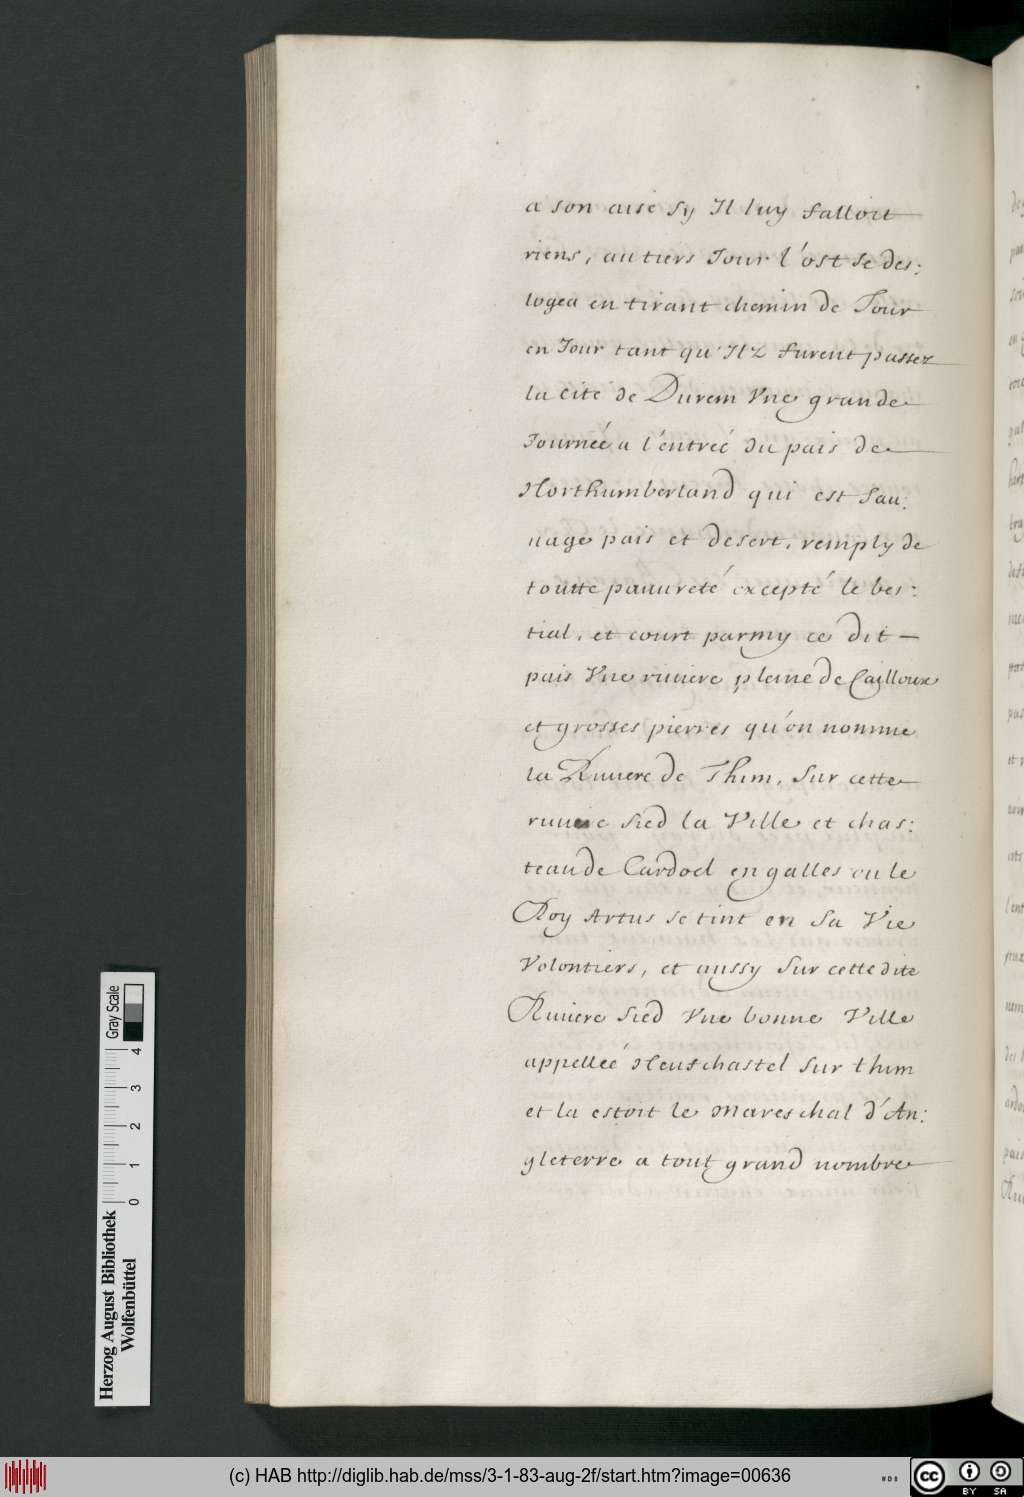 a son aise sy Il luy falloit
riens, au tiers Jour l'ost se des:
logea en tirant chemin de Jour
en Jour tant qu'Ilz furent passez
la cité de Durem Vne grande
Journeé a l'entreé du pais de
Northumberland qui est sau:
uage pais et desert, remply de
toutte pauureté excepté le bes:
tial, et court parmy ce dit —
pais Vne riuiere pleine de Cailloux
et grosses pierres qu'on nomme
la Riuiere de Thim, sur cette
riuiere sied la Ville et chas:
teau de Cardoel en galles ou le
Roy Artus se tint en sa Vie
Volontiers, et aussy sur cette dite
Riuiere sied Vne bonne Ville
appelleé Neufchastel sur thim
et la estoit le mareschal d'An:
gleterre a tout grand nombre
Herzog August Bibliothek
Wolfenbüttel
0 1 2 3 4
Gray Scale
(c) HAB http://diglib.hab.de/mss/3-1-83-aug-2f/start.htm?image=00636
WDB
cc BY SA